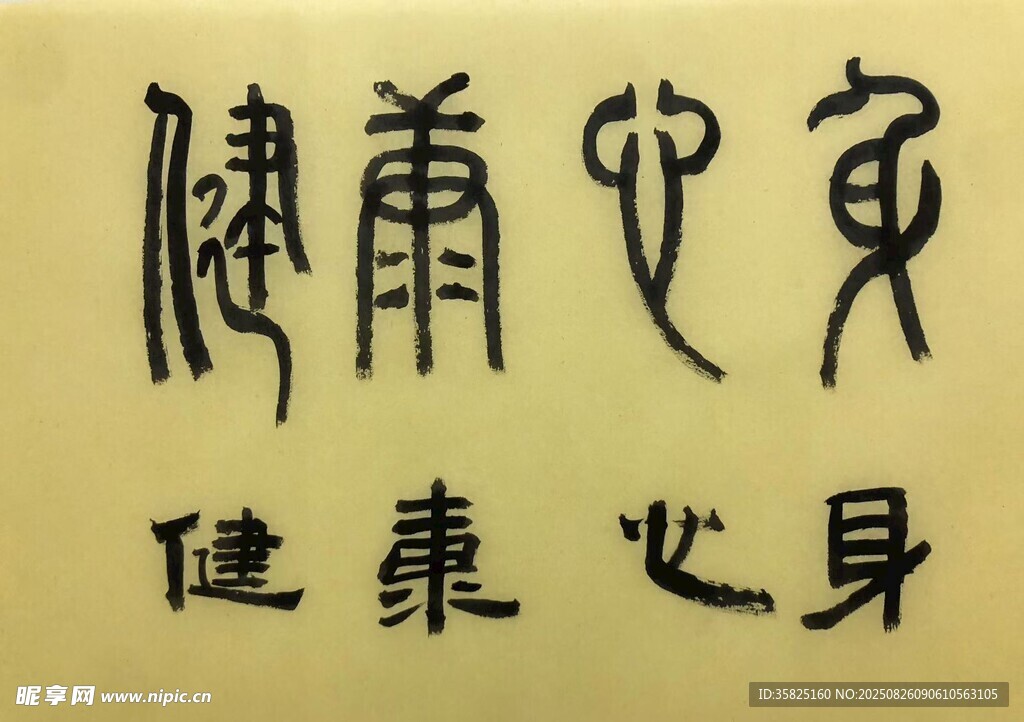 身心康健
身心康健
昵享网 www.nipic.cn
ID:35825160 NO:20250826090610563105